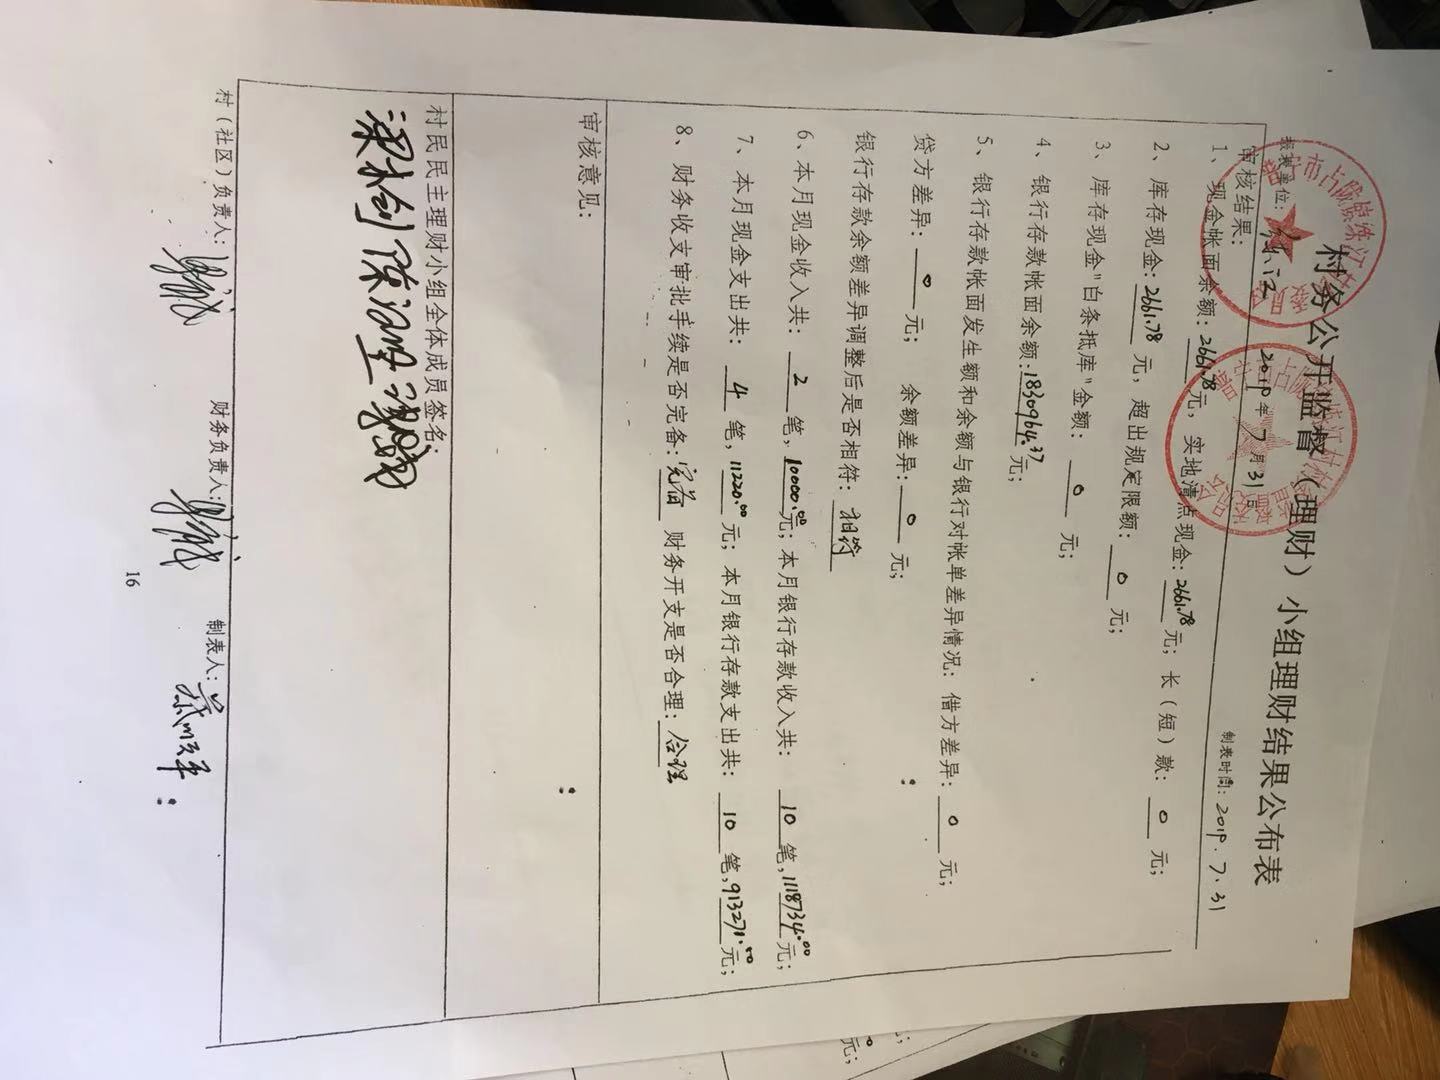 村务公开监督（理财）小组理财结果公布表
报账单位： 练江 2019年7月31日 制表时间：2019.7.31
审核结果：
1、现金帐面余额：2661.78元，实地清点现金：2661.78元；长（短）款：0元；
2、库存现金：2661.78元，超出规定限额：0元；
3、库存现金"白条抵库"金额：0元；
4、银行存款帐面余额：1830964.37元；
5、银行存款帐面发生额和余额与银行对帐单差异情况：借方差异：0元；
贷方差异：0元； 余额差异：0元；
银行存款余额差异调整后是否相符：相符
6、本月现金收入共：2笔，10000.00元；本月银行存款收入共：10笔，1118734.00元；
7、本月现金支出共：4笔，11220.00元；本月银行存款支出共：10笔，913271.00元；
8、财务收支审批手续是否完备：完备 财务开支是否合理：合理
审核意见：
村民民主理财小组全体成员签名：
村（社区）负责人： 财务负责人： 制表人：
16
元；
元；